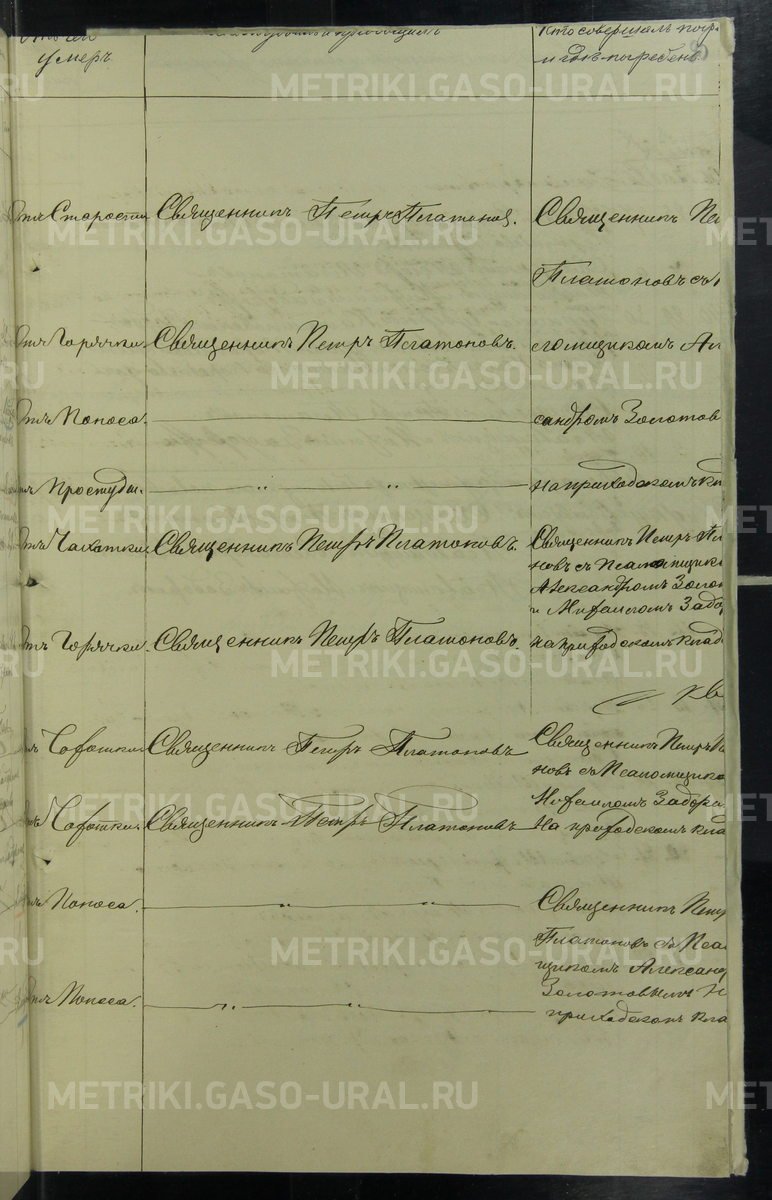 умеръ
Кто совершалъ погр
и гдѣ погребенъ
Отъ Старости Священникъ Петръ Платоновъ. Священникъ Пе
Платоновъ съ
Отъ Горячки. Священникъ Петръ Платоновъ. Ал
Отъ Поноса. сандромъ Золотов
отъ Простуды. " " на приходскомъ кл
Отъ Чахотки. Священникъ Петръ Платоновъ. Священникъ Петръ Пла
новъ съ Псаломщико
Александромъ Золот
и Михаиломъ Забо
Отъ Горячки. Священникъ Петръ Платоновъ. на приходскомъ клад
отъ Чахотки Священникъ Петръ Платоновъ Священникъ Петръ Пл
новъ съ Псаломщико
Михаиломъ Забора
отъ Чахотки. Священникъ Петръ Платоновъ На приходскомъ кла
отъ Поноса. " " Священникъ Петр
Платоновъ съ Псал
щикомъ Александ
Золотовымъ Н
отъ Поноса. " " приходскомъ кла
METRIKI.GASO-URAL.RU